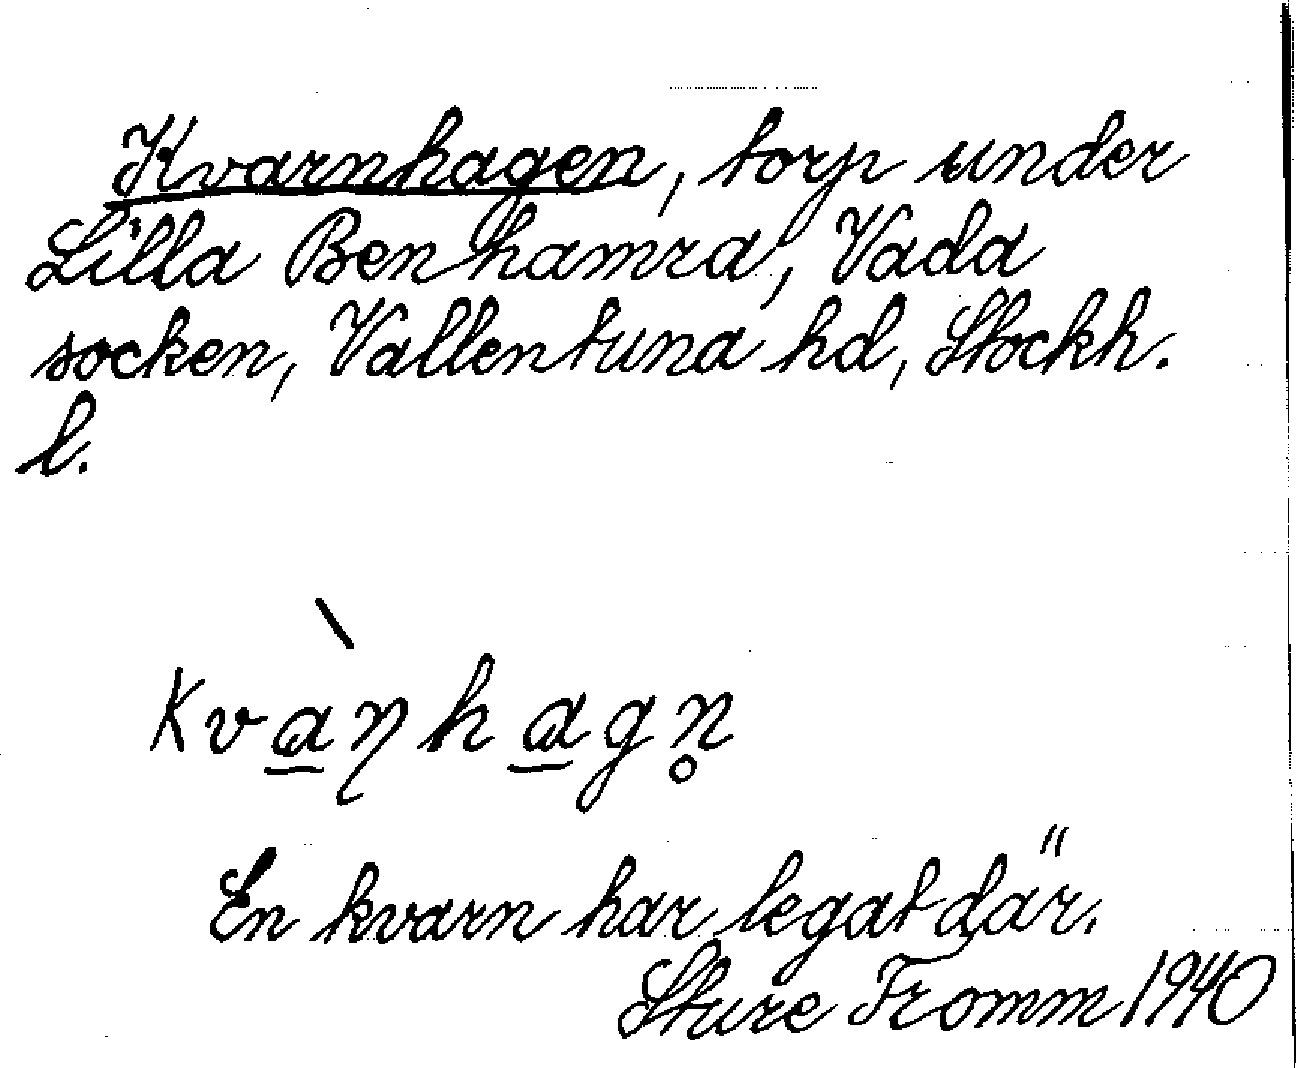 Kvarnhagen, torp under
Lilla Benhamra, Vada
socken, Vallentuna hd, Stockh.
l.
kvа̱̀ɳha̱gn̥
En kvarn har legat där.
Sture Fromm 1940